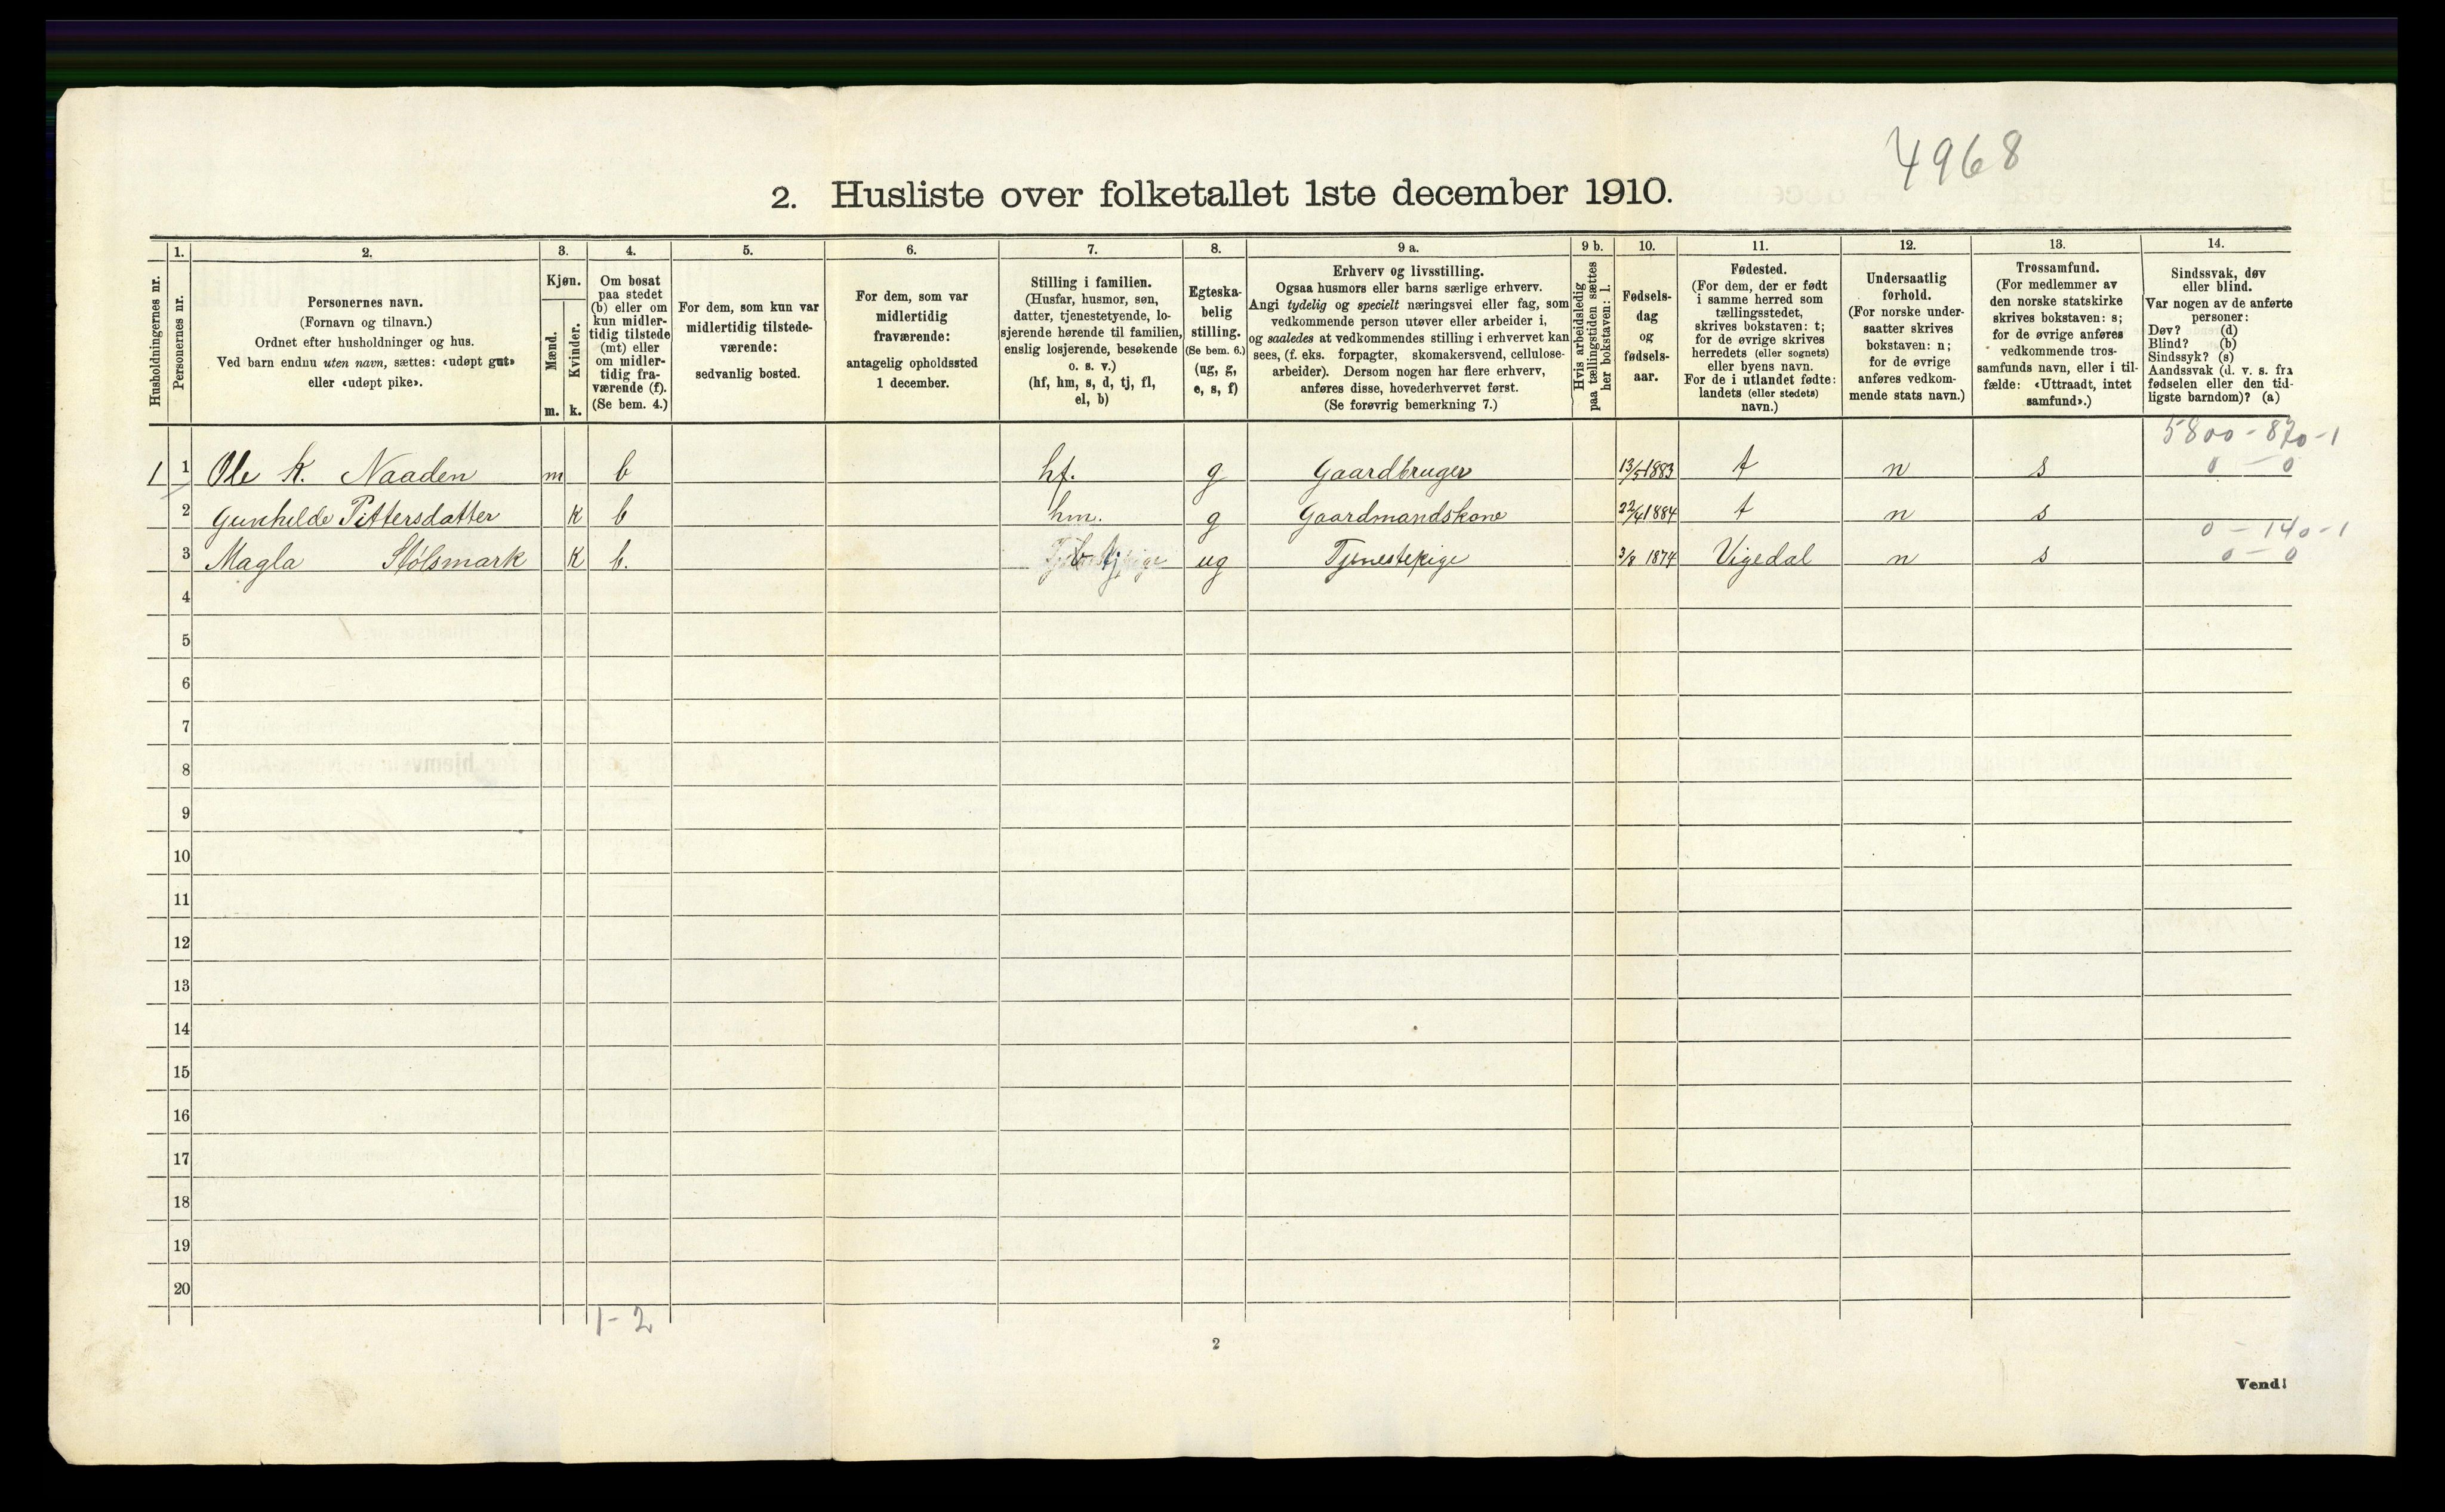 4968
2. Husliste over folketallet 1ste december 1910.
Husholdningernes nr.
1.
Personernes nr.
2.
Personernes navn.
(Fornavn og tilnavn.)
Ordnet efter husholdninger og hus.
Ved barn endnu uten navn, sættes: «udøpt gut»
eller «udøpt pike».
3.
Kjøn.
Mænd.
Kvinder.
m. k.
4.
Om bosat
paa stedet
(b) eller om
kun midler-
tidig tilstede
(mt) eller
om midler-
tidig fra-
værende (f).
(Se bem. 4.)
5.
For dem, som kun var
midlertidig tilstede-
værende:
sedvanlig bosted.
6.
For dem, som var
midlertidig
fraværende:
antagelig opholdssted
1 december.
7.
Stilling i familien.
(Husfar, husmor, søn,
datter, tjenestetyende, lo-
sjerende hørende til familien,
enslig losjerende, besøkende
o. s. v.)
(hf, hm, s, d, tj, fl,
el, b)
8.
Egteska-
belig
stilling.
(Se bem. 6.)
(ug, g,
e, s, f)
9 a.
Erhverv og livsstilling.
Ogsaa husmors eller barns særlige erhverv.
Angi tydelig og specielt næringsvei eller fag, som
vedkommende person utøver eller arbeider i,
og saaledes at vedkommendes stilling i erhvervet kan
sees, (f. eks. forpagter, skomakersvend, cellulose-
arbeider). Dersom nogen har flere erhverv,
anføres disse, hovederhvervet først.
(Se forøvrig bemerkning 7.)
9 b.
Hvis arbeidsledig
paa tællingstiden sættes
her bokstaven: l.
10.
Fødsels-
dag
og
fødsels-
aar.
11.
Fødested.
(For dem, der er født
i samme herred som
tællingsstedet,
skrives bokstaven: t;
for de øvrige skrives
herredets (eller sognets)
eller byens navn.
For de i utlandet fødte:
landets (eller stedets)
navn.)
12.
Undersaatlig
forhold.
(For norske under-
saatter skrives
bokstaven: n;
for de øvrige
anføres vedkom-
mende stats navn.)
13.
Trossamfund.
(For medlemmer av
den norske statskirke
skrives bokstaven: s;
for de øvrige anføres
vedkommende tros-
samfunds navn, eller i til-
fælde: «Uttraadt, intet
samfund».)
14.
Sindssvak, døv
eller blind.
Var nogen av de anførte
personer:
Døv? (d)
Blind? (b)
Sindssyk? (s)
Aandssvak (d. v. s. fra
fødselen eller den tid-
ligste barndom)? (a)
5800 - 870 - 1
1 1 Ole K. Naaden m b hf. g Gaardbruger 13/5 1883 t n s 0 - 0
2 Gunhilde Pittersdatter K b hm. g Gaardmandskone 22/4 1884 t n s
0 - 140 - 1
3 Magla Stólsmark K b. tj ug Tjenestepige 3/8 1874 Vigedal n s 0 - 0
4
5
6
7
8
9
10
11
12
13
14
15
16
17
18
19
20
1 - 2
2
Vend!